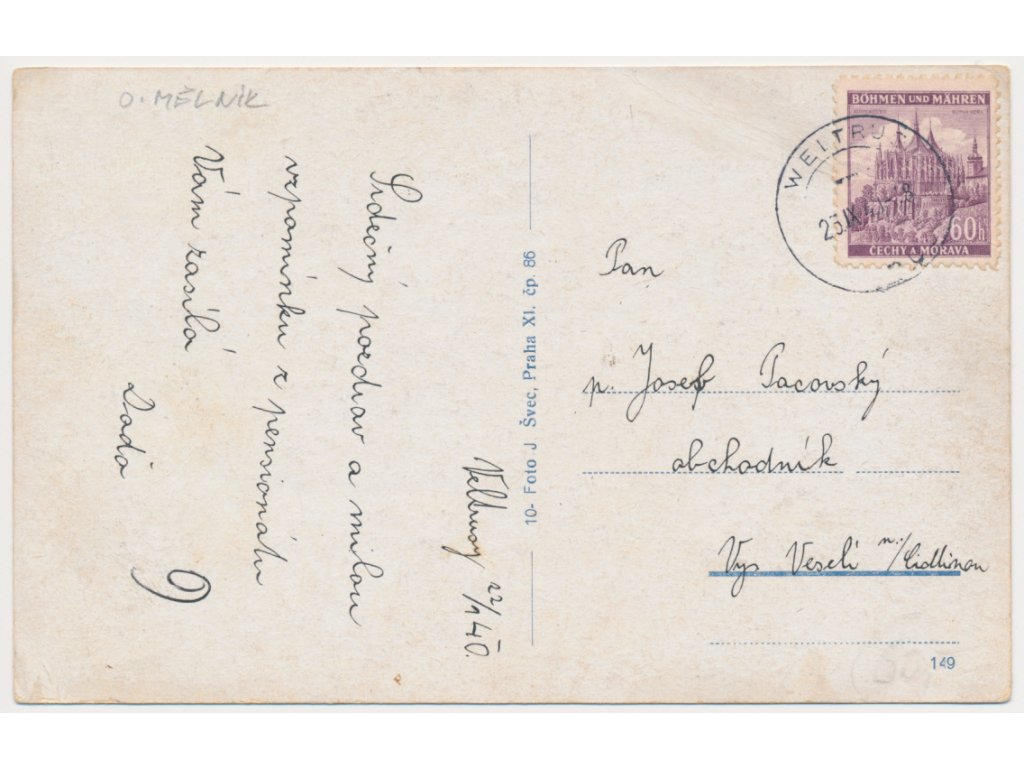 O. MĚLNÍK
Veltrusy 22/1 40.
Srdečný pozdrav a milou
vzpomínku z pensionátu
Vám zasílá
Dáda
9
10- Foto J Švec, Praha XI. čp. 86
BÖHMEN UND MÄHREN
60h
ČECHY A MORAVA
WELTRU
Pan
p. Josef Pacovský
obchodník
Vys Veselí n./Cidlinou
149